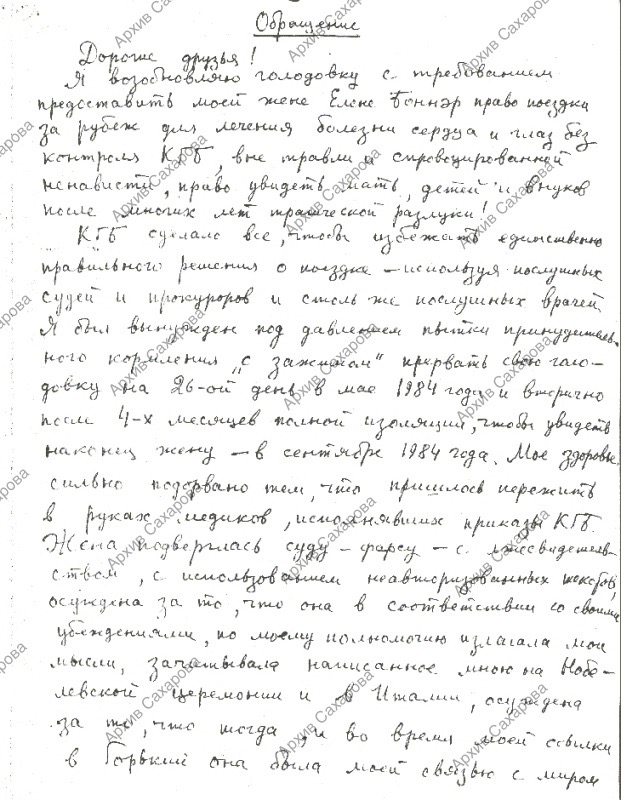 Обращение
Дорогие друзья!
Я возобновляю голодовку с требованием
предоставить моей жене Елене Боннэр право поездки
за рубеж для лечения болезни сердца и глаз без
контроля КГБ, вне травли и спровоцированной
ненависти, право увидеть мать, детей и внуков
после многих лет трагической разлуки!
КГБ сделало все, чтобы избежать единственно
правильного решения о поездке – используя послушных
судей и прокуроров и столь же послушных врачей.
Я был вынужден под давлением пытки принудитель-
ного кормления „с зажимом" прервать свою голо-
довку на 26-ой день в мае 1984 года и вторично
после 4-х месяцев полной изоляции, чтобы увидеть
наконец жену – в сентябре 1984 года. Мое здоровье
сильно подорвано тем, что пришлось пережить
в руках медиков, исполнявших приказы КГБ.
Жена подверглась суду – фарсу – с лжесвидетель-
ством, с использованием неавторизованных текстов,
осуждена за то, что она в соответствии со своими
убеждениями, по моему полномочию излагала мои
мысли, зачитывала написанное мною на Нобе-
левской церемонии и в Италии, осуждена
за то, что тогда и во время моей ссылки
в Горький она была моей связью с миром
Архив Сахарова
Архив Сахарова
Архив Сахарова
Архив Сахарова
Архив Сахарова
Архив Сахарова
Архив Сахарова
Архив Сахарова
Архив Сахарова
Архив Сахарова
Архив Сахарова
Архив Сахарова